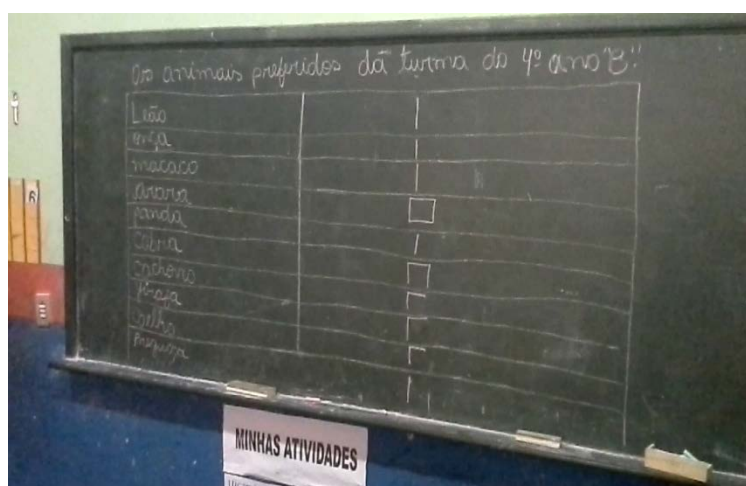 Os animais preferidos da turma do 4º ano "B".
Leão
onça
macaco
arara
panda
cobra
cachorro
girafa
coelho
preguiça
MINHAS ATIVIDADES